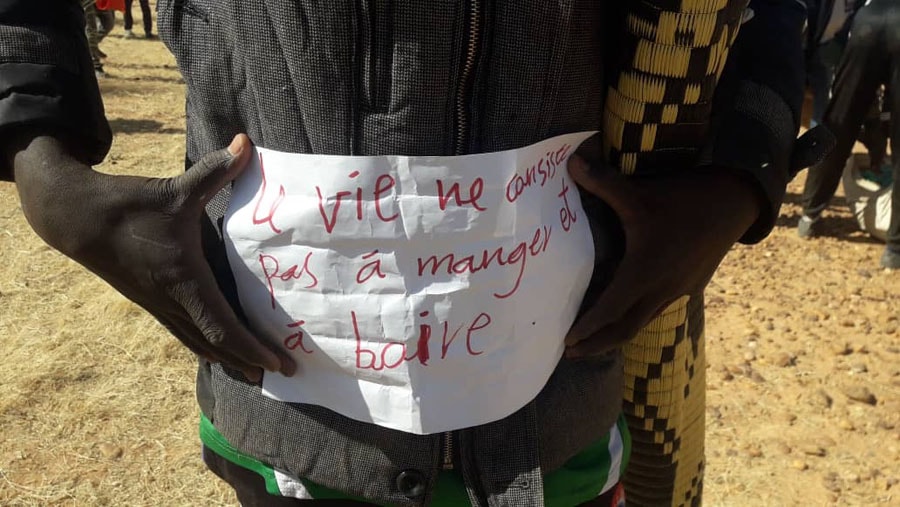 le vie ne consiste
pas á manger et
á baire.